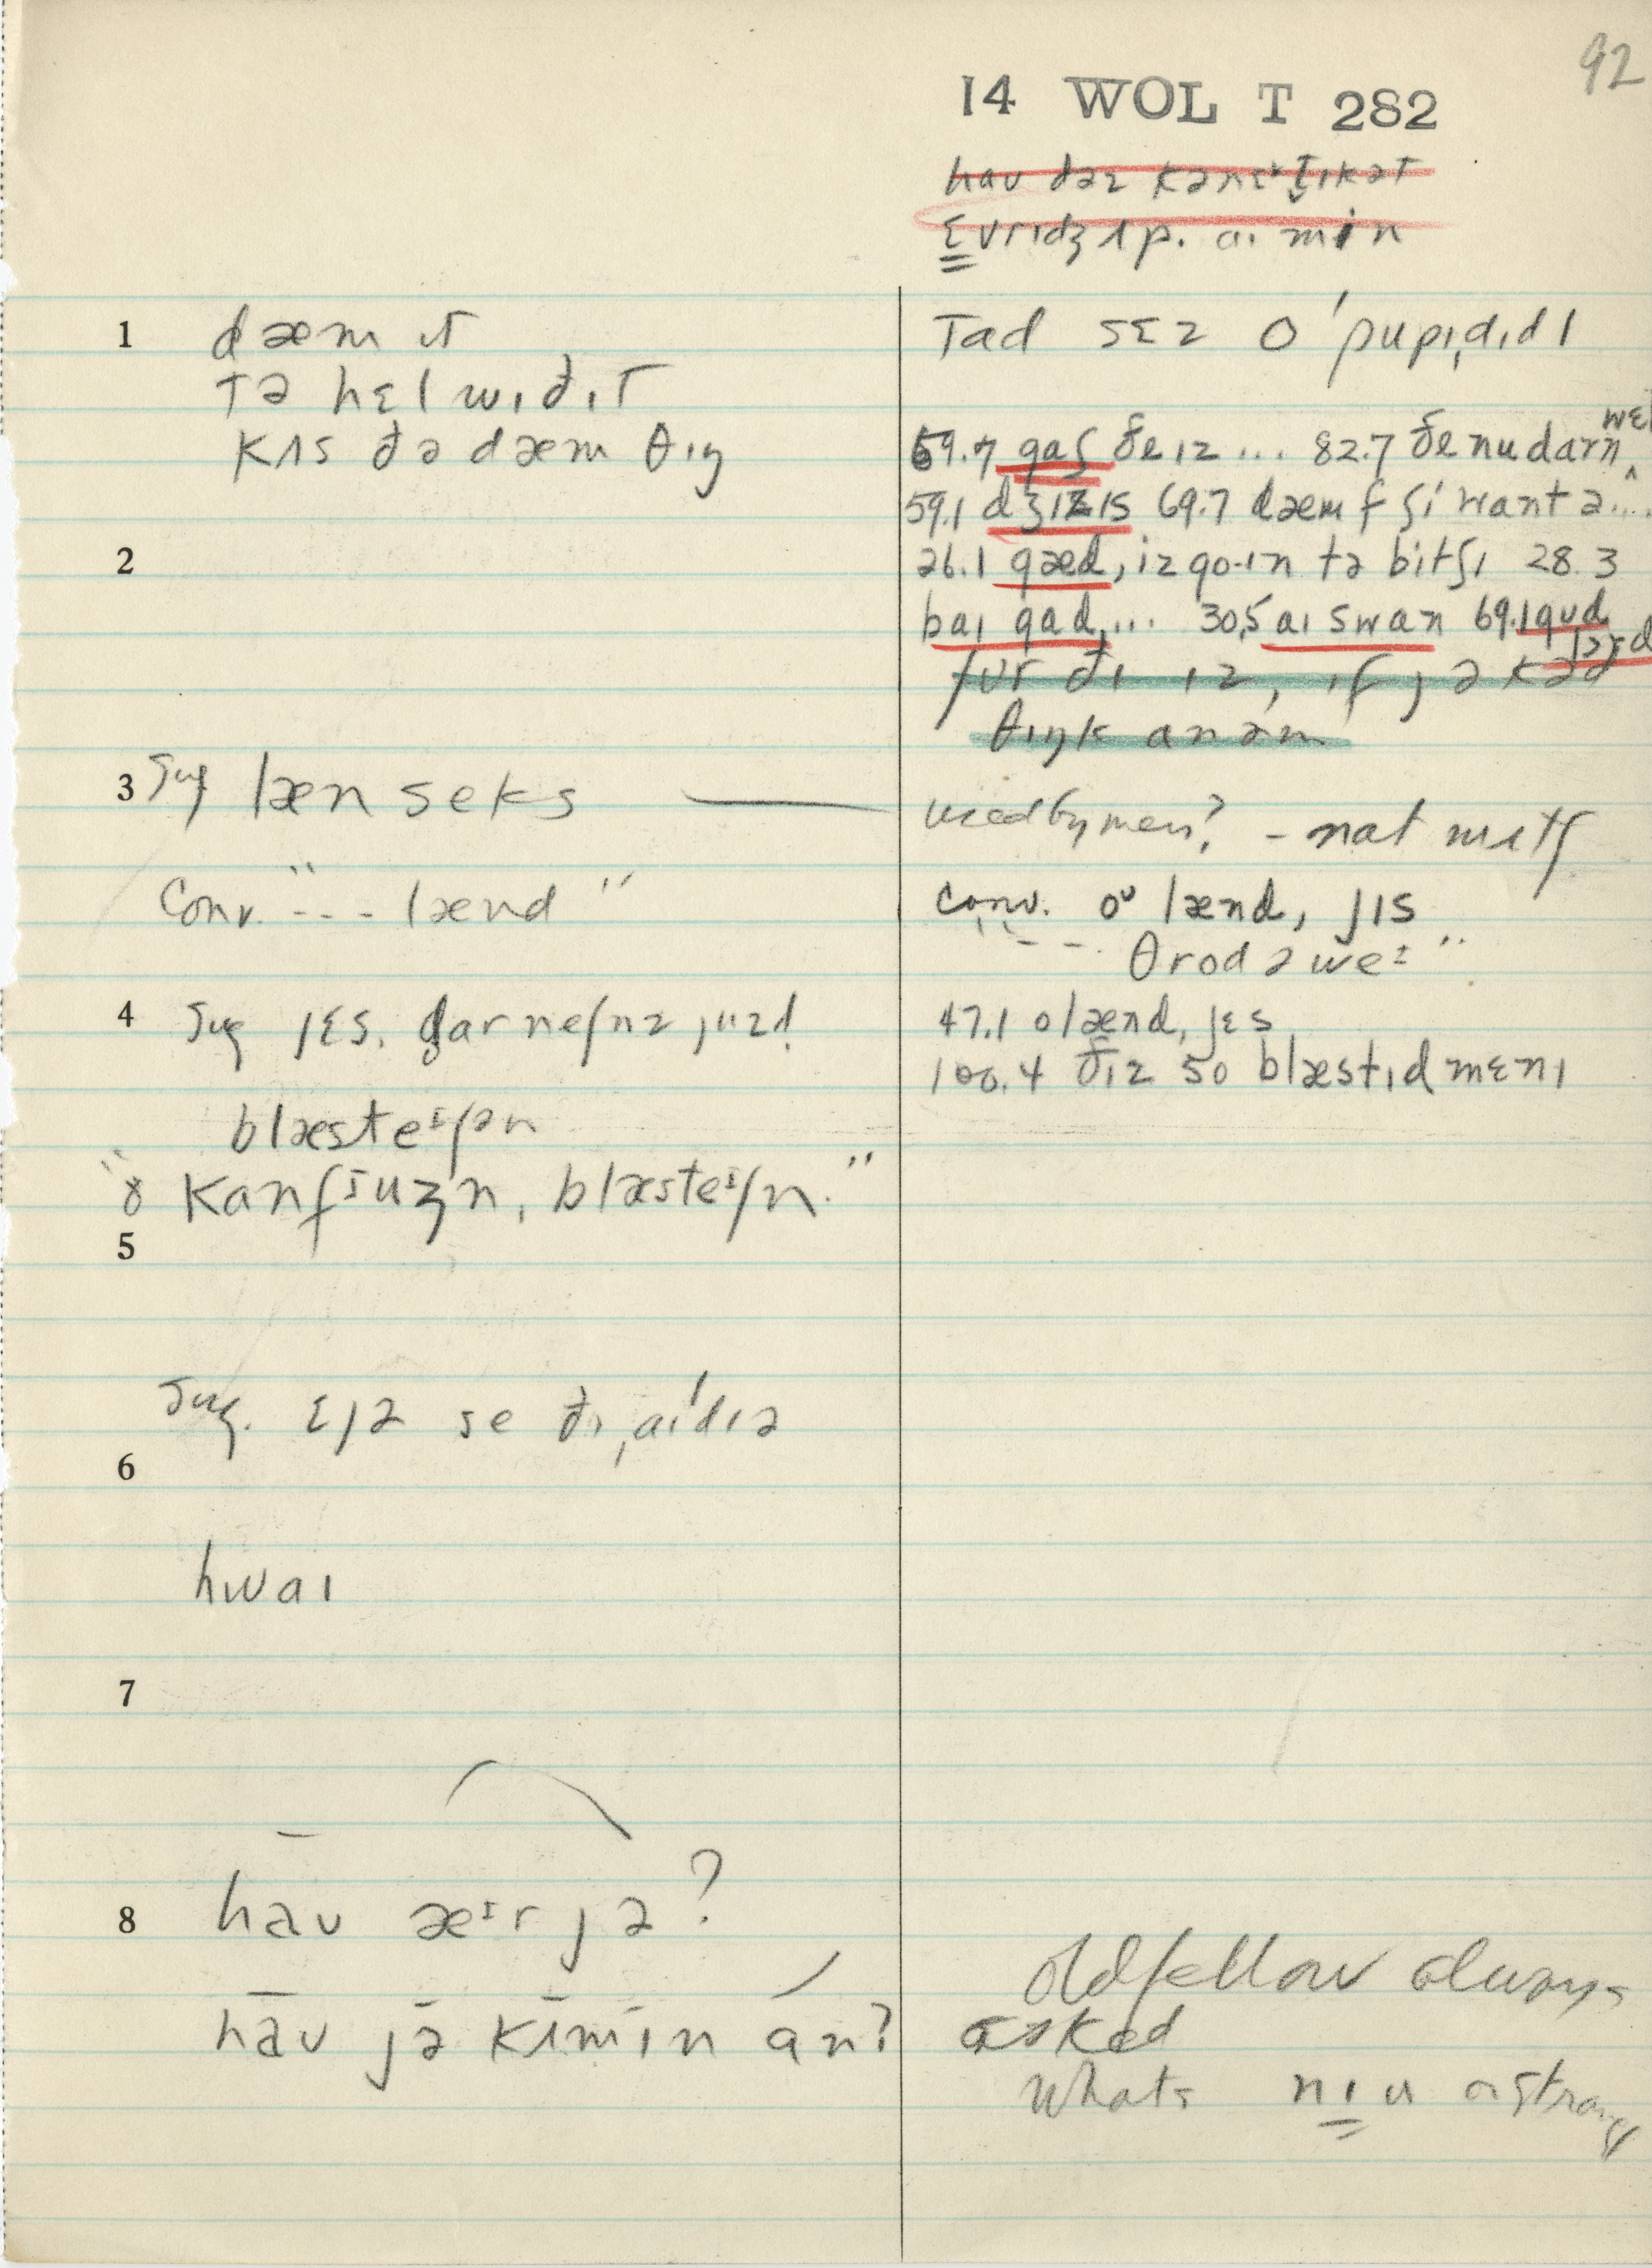 92
14 WOL T 282
hau dəz kənɛktɪkət
ɛvrɪdʒ ʌp. aɪ min
1 dæm ɪt
tə hɛl wɪðɪt
kʌs ðə dæm θɪŋ
Tad sɛz o ˈpupɪˌdɪdɪ
59.7 gaʃ ðeɪz ... 82.7 ðe nu darn wɛl
59.1 dʒizɪs 69.7 dæmf ʃi want ə....
26.1 gæd, iz go-ɪn tə bitʃɪ 28.3
baɪ gad, ... 30.5 aɪ swan 69.1 gud
lərd
fʊr ðɪ ɪz, ɪf jə kəd
θɪŋk ənəm
2
3 Sug læn seks
used by men? - nat mʌtʃ
Conv. "--- lænd"
conv. oᵘ lænd, jɪs
"--- θrod əweɪ"
4 Sug jɛs. darneʃnz juzd
47.1 o lænd, jɛs
100.4 ðɪz so blæstɪd mɛnɪ
blæsteɪʃən
"ɤ kanfjuʒn, blæsteɪʃn."
5
Sug. ɛjə se ðɪ ˌaɪˈdɪə
6
hwaɪ
7
8 haʊ æᶦr jə?
haʊ jə kʌmɪn an?
old fellow always
asked
Whats nɪu